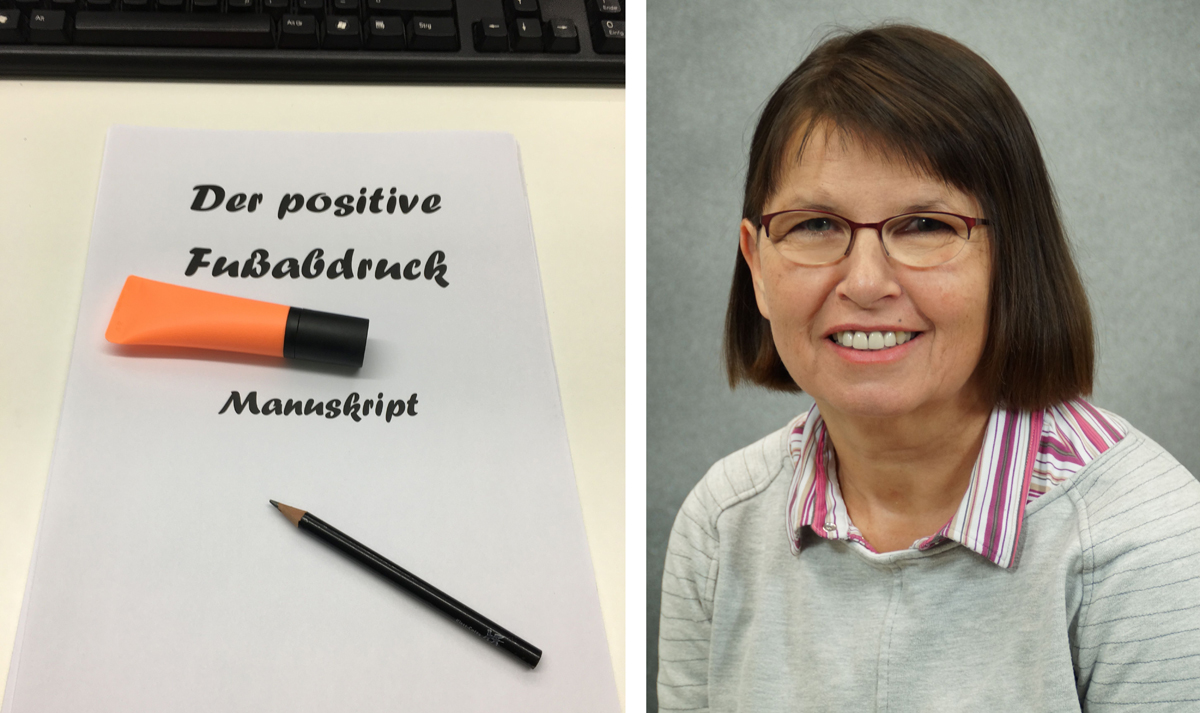 Alt Gr
Strg
Der positive
Fußabdruck
Manuskript